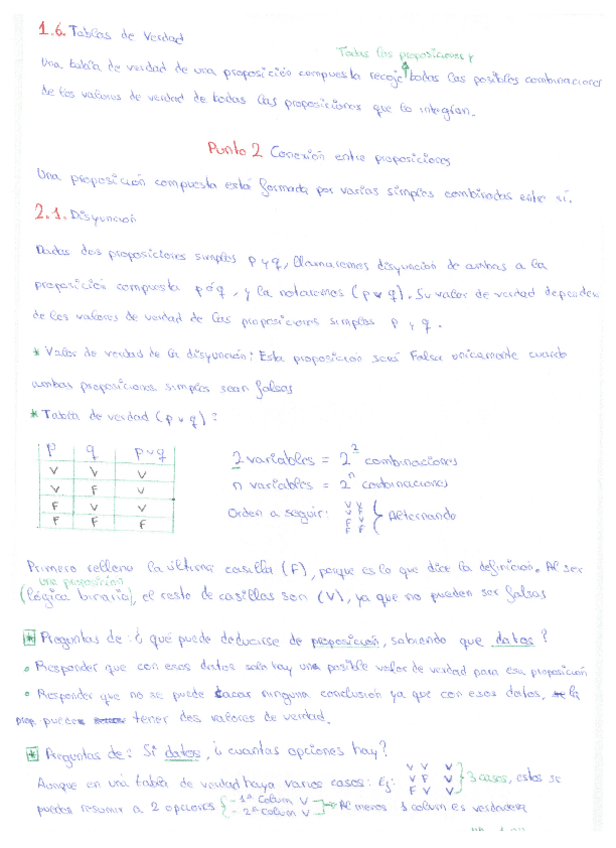 1.6. Tablas de Verdad
Todas las proposiciones y
Una tabla de verdad de una proposición compuesta recoje todas las posibles combinaciones
de los valores de verdad de todas las proposiciones que la integran.
Punto 2 Conexión entre proposiciones
Una proposición compuesta está formada por varias simples combinadas entre sí.
2.1. Disyunción
Dadas dos proposiciones simples p y q, llamaremos disyunción de ambas a la
proposición compuesta p ó q, y la notaremos (p v q). Su valor de verdad dependen
de los valores de verdad de las proposiciones simples p y q.
* Valor de verdad de la disyunción: Esta proposición será Falsa unicamente cuando
ambas proposiciones simples sean falsas
* Tabla de verdad (p v q):
p q p v q
V V V
V F V
F V V
F F F
2 variables = 2² combinaciones
n variables = 2ⁿ combinaciones
Orden a seguir: V V
V F
F V
F F
} Alternando
Primero relleno la última casilla (F), porque es lo que dice la definición. Al ser
una proposición
(lógica binaria), el resto de casillas son (V), ya que no pueden ser falsas
* Preguntas de: ¿ qué puede deducirse de proposición, sabiendo que datos?
• Responder que con esos datos solo hay un posible valor de verdad para esa proposición
• Responder que no se puede sacar ninguna conclusión ya que con esos datos, la
prop. puede tener dos valores de verdad.
* Preguntas de: Si datos, ¿ cuantas opciones hay?
Aunque en una tabla de verdad haya varios casos: Ej: V V V
V F V
F V V
} 3 casos, estos se
pueden resumir a 2 opciones { - 1ª Colum V
- 2ª Colum V
→ Al menos 1 colum es verdadera